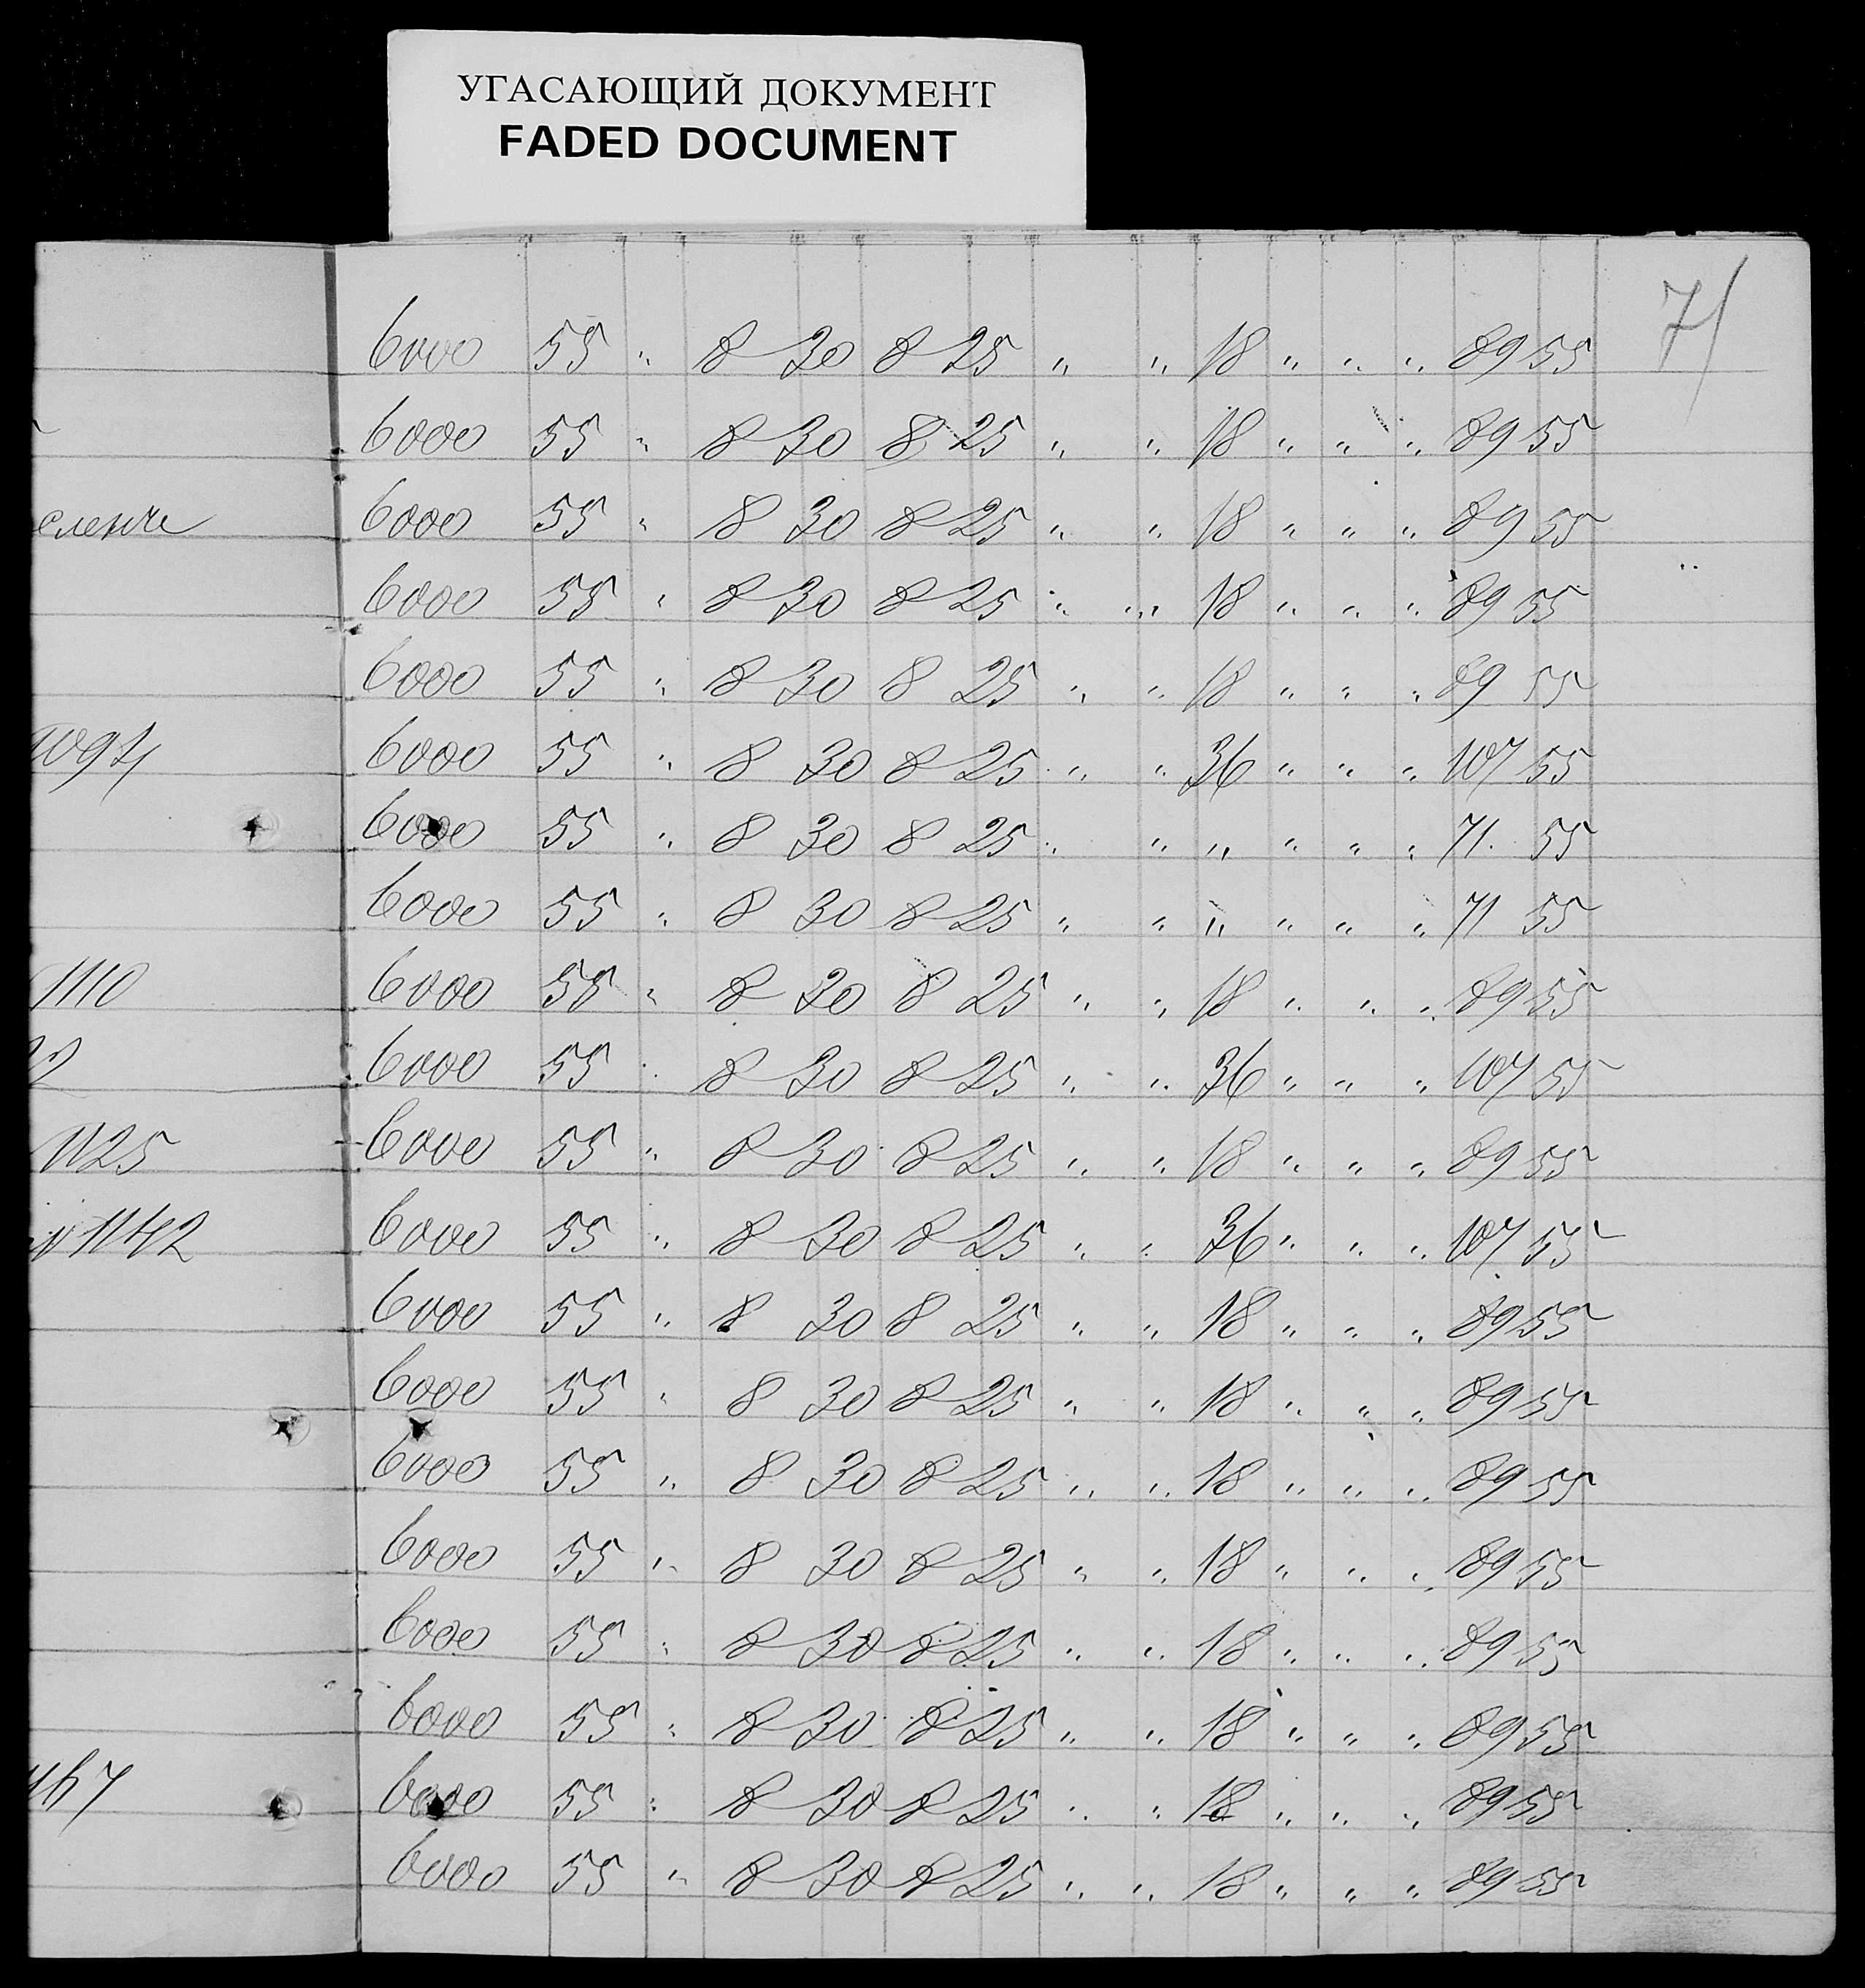 УГАСАЮЩИЙ ДОКУМЕНТ
FADED DOCUMENT
71
6000 55 " 8 30 8 25 " " 18 " " " 89 55
6000 55 " 8 30 8 25 " " 18 " " " 89 55
6000 55 " 8 30 8 25 " " 18 " " " 89 55
6000 55 " 8 30 8 25 " " 18 " " " 89 55
6000 55 " 8 30 8 25 " " 18 " " " 89 55
6000 55 " 8 30 8 25 " " 36 " " " 107 55
6000 55 " 8 30 8 25 " " " " " " 71. 55
6000 55 " 8 30 8 25 " " " " " " 71 55
1110 6000 55 " 8 30 8 25 " " 18 " " " 89 55
6000 55 " 8 30 8 25 " " 36 " " " 107 55
1125 6000 55 " 8 30 8 25 " " 18 " " " 89 55
1142 6000 55 " 8 30 8 25 " " 36 " " " 107 55
6000 55 " 8 30 8 25 " " 18 " " " 89 55
6000 55 " 8 30 8 25 " " 18 " " " 89 55
6000 55 " 8 30 8 25 " " 18 " " " 89 55
6000 55 " 8 30 8 25 " " 18 " " " 89 55
6000 55 " 8 30 8 25 " " 18 " " " 89 55
6000 55 " 8 30 8 25 " " 18 " " " 89 55
6000 55 " 8 30 8 25 " " 18 " " " 89 55
6000 55 " 8 30 8 25 " " 18 " " " 89 55